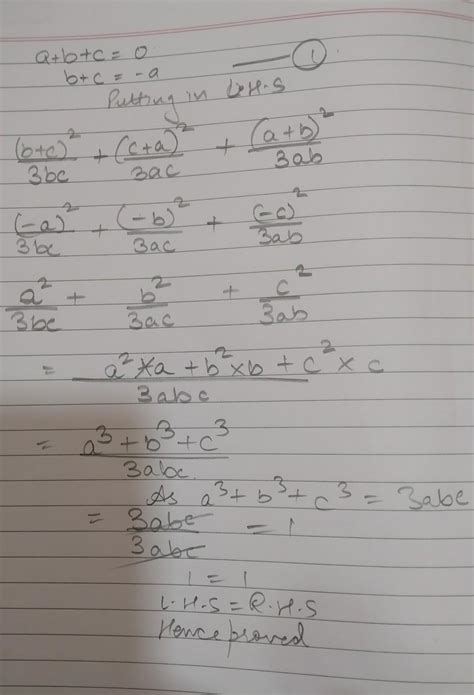 a+b+c = 0 ——— ①
b+c = -a
Putting in L.H.S
(b+c)²/3bc + (c+a)²/3ac + (a+b)²/3ab
(-a)²/3bc + (-b)²/3ac + (-c)²/3ab
a²/3bc + b²/3ac + c²/3ab
= a²×a + b²×b + c²×c / 3abc
= a³+b³+c³ / 3abc
As a³+b³+c³ = 3abc
= 3abc/3abc = 1
1 = 1
L.H.S = R.H.S
Hence proved